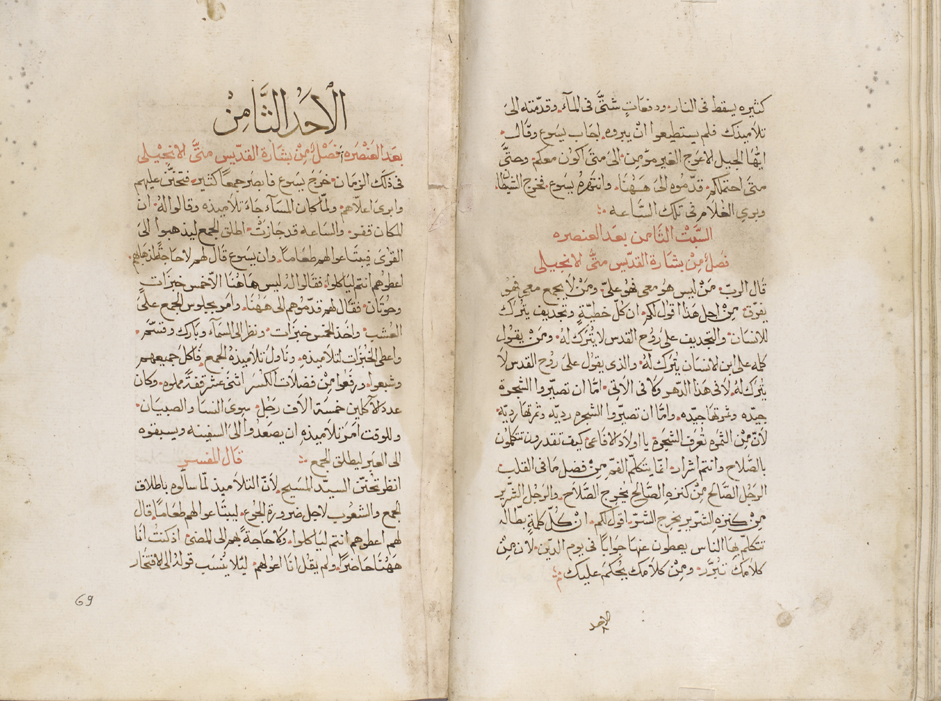 كثيره يسقط في النار٠ ودفعاتٍ شتَّى في المآء٠ وقدّمته الىَ
تلاميذك فلم يستطيعوا انْ يبروه٠ اجاب يسوع وقال٠
ايّها الجيل الاعوج الغير مومن٠ الى متىَ اكون معكم٠ وحتَّى
متىَ احتملكم٠ قدموه الىَ هَهُنا٠ وانتهره يسوع فخرج الشيطان
وبري الغلام في تلك السَّاعه
السَّبْت الثَّامن بعد العنصره
فصلٌ منْ بشارة القدّيس متَّى الانجيلى
قال الربّ٠ مَنْ ليس هو معي فهو عليّ٠ ومَنْ لاَ يجمع معي فهو
يفرّق٠ منْ اجل هذا اقول لكم٠ ان كلّ خطيّةٍ وتجديف يُترك
للانسان٠ والتجديف علىَ روُح القدس لا يُترك لهُ٠ ومَنْ يقول
كلمه على ابن الانسان يُترك لهُ٠ والذي يقول علىَ روُح القدس لاَ
يُترك لهُ لا في هذا الدهر ولا في الاتي٠ امّا ان تصيّروا الشجره
جيّده وثمرتها جيّده٠ وامَّا ان تصيّروا الشجره رديّه وثمرتها رديّه٠
لانّ منْ الثمره تُعرف الشجره٠ يا اولاد الافاعي كيف تقدرون تتكلمون
بالصَّلاح وانتم اشرار٠ امّا يتكلّم الفم منْ فضل ما في القلب٠
الرجل الصَّالح منْ كنزه الصَّالح يُخرج الصَّلاح٠ والرجل الشرّير
منْ كنزه الشرّير يخرج الشرّ٠ اقول لكم٠ انّ كلّ كلمةٍ بطّاله
تتكلّم بها الناس يعطون عنها جوابًا في يوم الدين٠ لانّ منْ
كلامك تبرَّر٠ ومنْ كلامك يُحكم عليك
الاحد
٨
الاَحَد الثَّامنْ
بعد العنصره٠ فصْلٌ منْ بشارة القدّيس متَّى الانجيلى
في ذلك الزمان٠ خرج يسوع فابصر جمعًا كثيرًا٠ فتحنّن عليهم
وابرى اعلّاهم٠ ولمّا كان المسآء جاءَ تلاميذه وقالوا لهُ٠ انّ
المكان قفر٠ والسّاعه قد جازتْ٠ اطلق الجمع ليذهبوا الىَ
القرىَ فيبتاعوا لهم طعاماً٠ وان يسوع قال لهم لا حاجة لذهابهم٠
اعطوهم انتم لياكلوا٠ فقالوا لهُ ليس هاهُنا الاّ خمس خبزات
وحوُتان٠ فقال لهم قدّموهم الى ههُنا٠ وامر بجلوس الجمع علىَ
العشب٠ واخذ الخمس خبزات٠ ونظر الى السمآء وبارك وقسّم٠
واعطى الخبزات لتلاميذه٠ وناول تلاميذهُ الجمع٠ فاكل جميعهم
وشبعوا٠ ورفعوا منْ فضلات الكسر اثنىَ عشر قفّةً مملوه٠ وكان
عدد الاكلين خمسة الاف رجلٍ٠ سوىَ النسا والصبيان٠
وللوقت امر تلاميذه ان يصعدوا الىَ السفينه ويسبقوه
الى العبر ليطلق الجمع
قال المفسر
انظر تحنّن السيّد المسيح٠ لانّ التلاميذ لمّا سالوه باطلاق
الجمع والشعوب لاجل ضرورة الجوع٠ ليبتاعوا لهم طعاماً٠ قال
لهم اعطوهم انتم لياكلوا٠ ولا حاجة لهم الى المضي٠ اذ كنت انا
ههُنا حاضراً٠ ولم يقل انا اعولهم٠ ليلا يُنسب قولهُ الى الافتخار
69